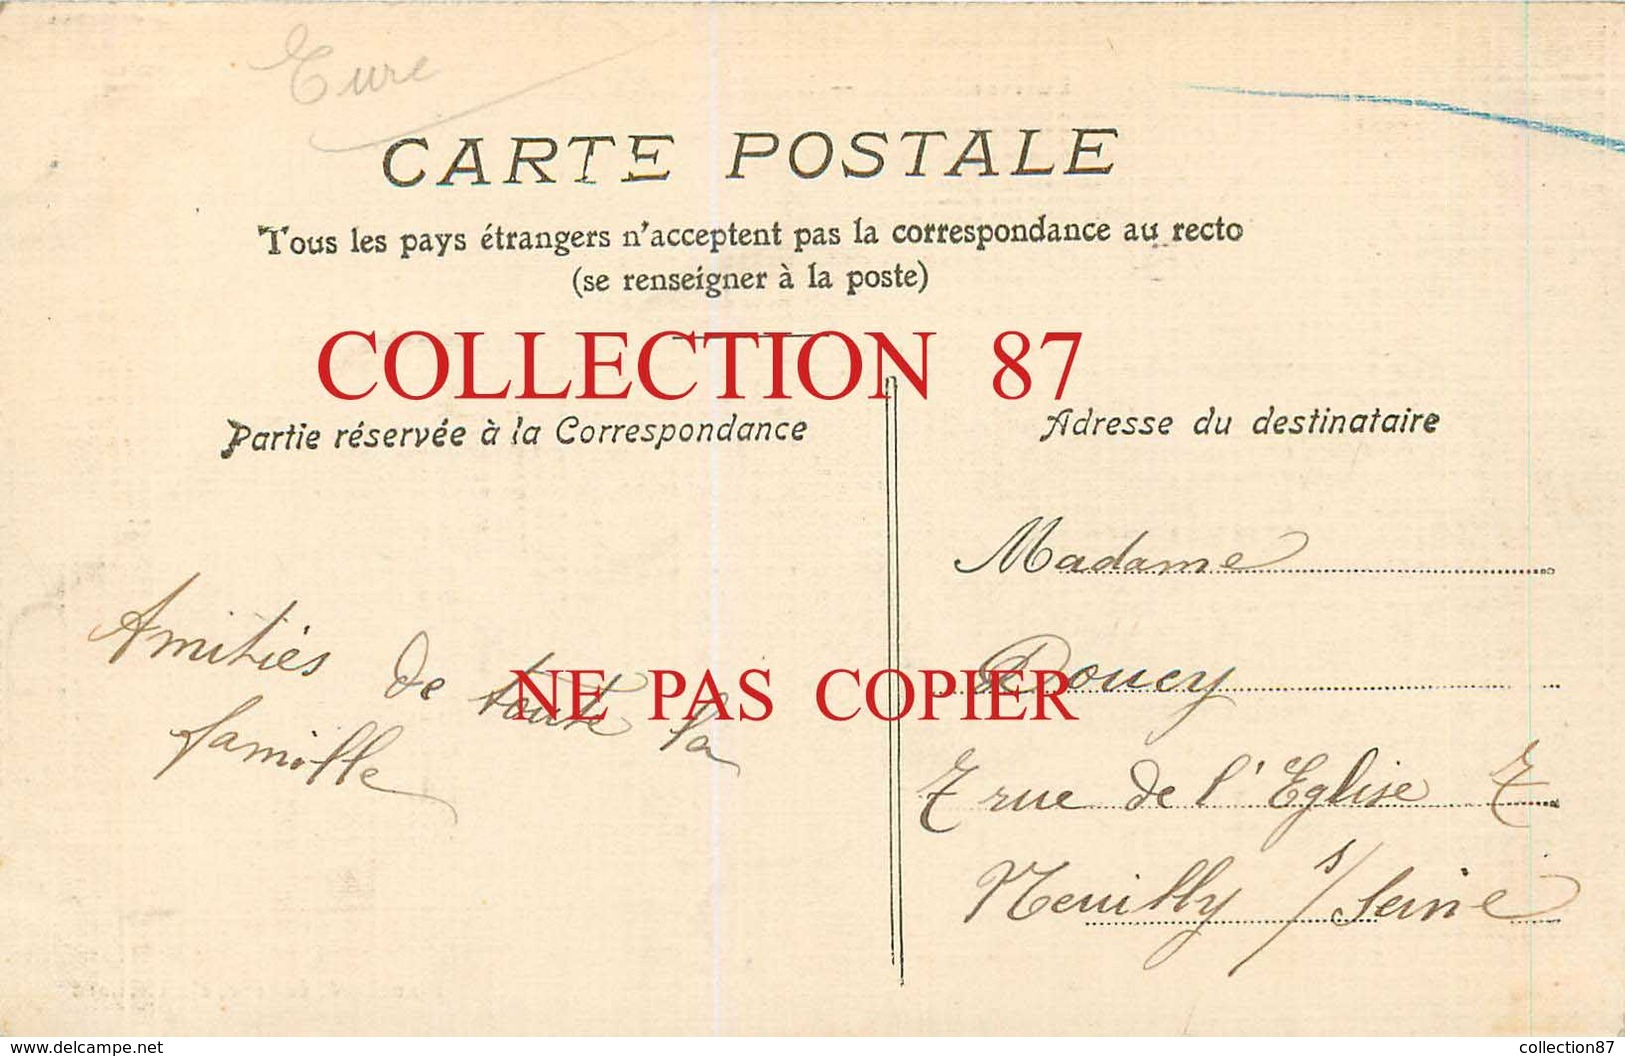 Eure
CARTE POSTALE
Tous les pays étrangers n'acceptent pas la correspondance au recto
(se renseigner à la poste)
COLLECTION 87
Partie réservée à la Correspondance
Adresse du destinataire
Amitiés de toute la
famille
NE PAS COPIER
Madame
Doucy
7 rue de l'Eglise 7
Neuilly s/ Seine
www.delcampe.net
collection87